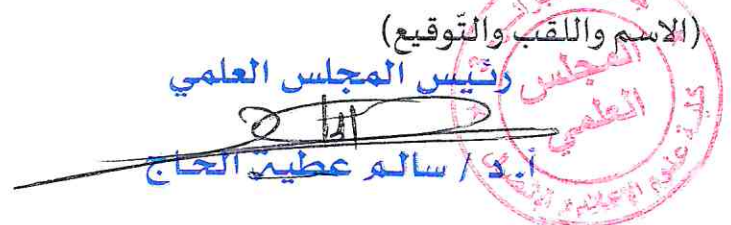 (الاسم واللقب والتّوقيع)
رئيس المجلس العلمي
أ.د / سالم عطية الحاج
المجلس
العلمي
كلية علوم الإعلام و الإتصال